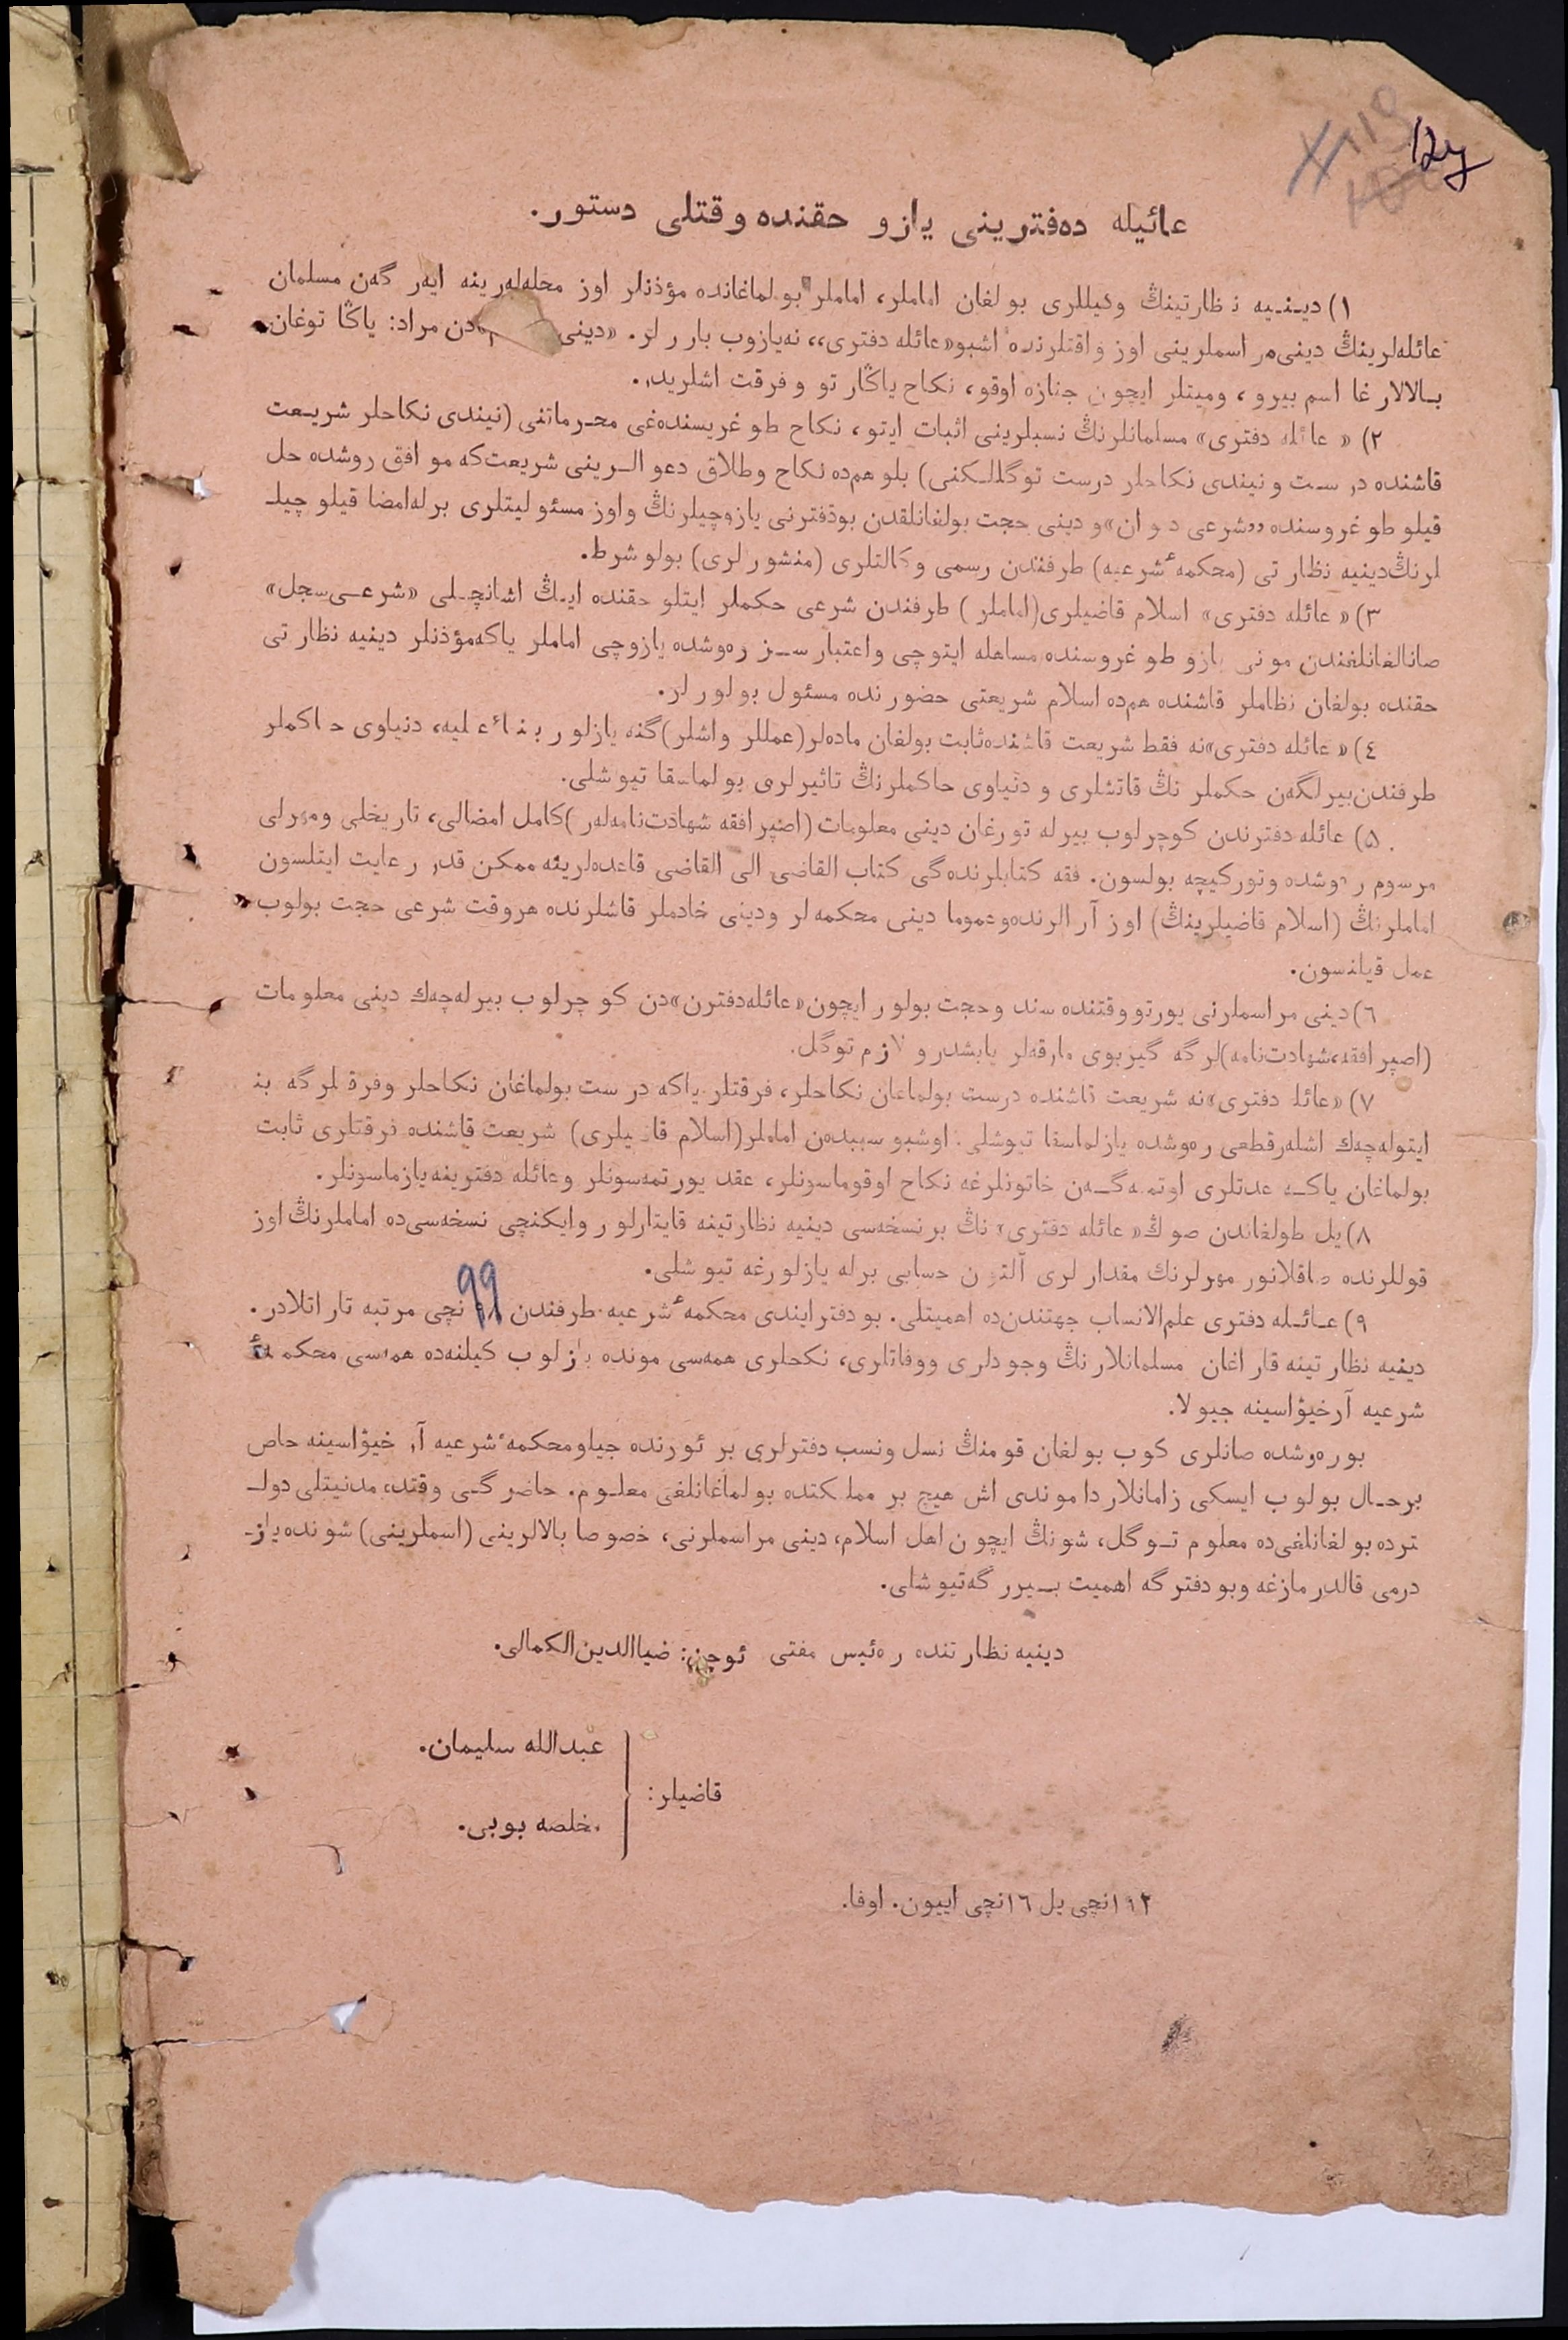 124
عائیله ده‌فترینی یازو حقنده وقتلی دستور.
۱) دیـنـیه نظارتینڭ وکیللری بولغان اماملر، اماملر بولماغانده مؤذنلر اوز محله‌لرینه ایه‌ر گه‌ن مسلمان
عائله‌لرینڭ دینی مراسملرینی اوز واقتلرنده اشبو «عائله دفتری» نه‌یازوب بارر لر. «دینی دن مراد: یاڭا توغان
بـالالارغا اسم بیرو، ومیتلر ایچون جنازه اوقو، نکاح یاڭارتو و فرقت اشلریدر.
۲) «عائله دفتری» مسلمانلرنڭ نسبلرینی اثبات ایتو، نکاح طوغریسنده‌غی محـرماتنی (نیندی نکاحلر شریـعت
قاشنده درسـت و نیندی نکاحلر درست توگللـکنی) بلو هم‌ده نکاح وطلاق دعوالـرینی شریعت‌که موافق روشده حل
قیلو طوغروسنده «شرعی دیوان» و دینی حجت بولغانلقدن بودفترنی یازوچیلرنڭ واوز مسئولیتلری برله‌امضا قیلوچیلـ
لرنڭ‌دینیه نظارتی (محکمهٔ شرعیه) طرفندن رسمی وکالتلری (منشورلری) بولو شرط.
۳) «عائله دفتری» اسلام قاضیلری (اماملر) طرفندن شرعی حکملر ایتلو حقنده ایـڭ اشانچـلی «شرعـی‌سجل»
صانالغانلغندن مونی یازو طوغروسنده مساهله ایتوچی واعتبارسـز ره‌وشده یازوچی اماملر یاکه‌مؤذنلر دینیه نظارتی
حقنده بولغان نظاملر قاشنده هم‌ده اسلام شریعتی حضورنده مسئول بولورلر.
٤) «عائله دفتری»نه فقط شریعت قاشنده‌ثابت بولغان ماده‌لر (عمللر واشلر) گنه یازلور بناءعلیه، دنیاوی حاکملر
طرفندن‌بیرلگه‌ن حکملرنڭ قاتشلری و دنیاوی حاکملرنڭ تاثیرلری بولماسقا تیوشلی.
۵) عائله دفترندن کوچرلوب بیرله تورغان دینی معلومات (اصپرافقه شهادت‌نامه‌لر) کامل امضالی، تاریخلی ومهرلی
مرسوم ره‌وشده وتورکیچه بولسون. فقه کتابلرنده‌گی کتاب القاضی الی القاضی قاعده‌لرینه ممکن قدر رعایت ایتلسون
اماملرنڭ (اسلام قاضیلرینڭ) اوز آرالرنده‌وعموما دینی محکمه‌لر ودینی خادملر قاشلرنده هروقت شرعی حجت بولوب
عمل قیلنسون.
٦) دینی مراسملرنی یورتو وقتنده سند وحجت بولور ایچون «عائله‌دفترن»دن کوچرلوب بیرله‌چه‌ك دینی معلومات
(اصپرافقه،شهادت‌نامه)لرگه گیربوی مارقه‌لر یابشدرو لازم توگل.
۷) «عائله دفتری»نه شریعت قاشنده درست بولماغان نکاحلر، فرقتلر یاکه درست بولماغان نکاحلر وفرقتلرگه بنا
ایتوله‌چه‌ك اشله‌رقطعی ره‌وشده یازلماسقا تیوشلی. اوشبو سببدەن اماملر (اسلام قاضیلری) شریعت قاشنده فرقتلری ثابت
بولماغان یاکـه عدتلری اوتمه‌گـه‌ن خاتونلرغه نکاح اوقوماسونلر، عقد یورتمه‌سونلر وعائله دفترینه‌یازماسونلر.
۸) یل طولغاندن صوڭ «عائله دفتری» نڭ برنسخه‌سی دینیه نظارتینه قایتارلور وایکنچی نسخه‌سی‌ده اماملرنڭ اوز
قوللرنده صاقلانور مهرلرنك مقدارلری آلتون حسابی برله یازلورغه تیوشلی.
۹) عـائـله دفتری علم‌الانساب جهتندن‌ده اهمیتلی. بودفتر ایندی محکمهٔ شرعیه طرفندن 99 نچی مرتبه تاراتلادر.
دینیه نظارتینه قاراغان مسلمانلارنڭ وجودلری ووفاتلری، نکحلری همه‌سی مونده یازلوب کیلنه‌ده همه‌سی محکمهٔ
شرعیه آرخیۋاسینه جیولا.
بوره‌وشده صانلری کوب بولغان قومنڭ نسل ونسب دفترلری بر ئورنده جیلو محکمهٔ شرعیه آرخیۋاسینه خاص
برحـال بولوب ایسکی زامانلاردا موندی اش هیچ بر مملکتده بولماغانلغی معلـوم. حاضرگـی وقتده مدنیتلی دولـ
ترده بولغانلغی‌ده معلوم تـوگل، شونڭ ایچون اهل اسلام، دینی مراسملرنی، خصوصا بالالرینی (اسملرینی) شونده‌یازـ
درمی قالدرمازغه وبو دفترگه اهمیت بـیررگه‌تیوشلی.
دینیه نظارتنده ره‌ئیس مفتی ئوچن: ضیاالدین‌الکمالی.
عبدالله سلیمان.
قاضیلر:
مخلصه بوبی.
۱۹۲ نچی یل ۱٦نچی اییون. اوفا.